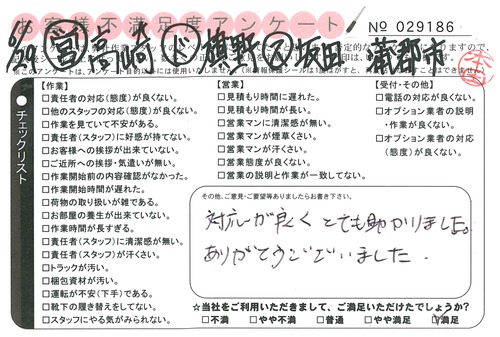 お客様不満足度アンケート
No 029186
6/29 営 宮崎 ド 槇野 ア 坂田 蒲郡市
チェックリスト
【作業】
□責任者の対応(態度)が良くない。
□他のスタッフの対応(態度)が良くない。
□作業を見ていて不安がある。
□責任者(スタッフ)に好感が持てない。
□お客様への挨拶が出来ていない。
□ご近所への挨拶・気遣いが無い。
□作業開始前の内容確認がなかった。
□作業開始時間が遅れた。
□荷物の取り扱いが雑である。
□お部屋の養生が出来ていない。
□作業時間が長すぎる。
□責任者(スタッフ)に清潔感が無い。
□責任者(スタッフ)が汗くさい。
□トラックが汚い。
□梱包資材が汚い。
□運転が不安(下手)である。
□靴下の履き替えをしてない。
□スタッフにやる気がみられない。
【営業】
□見積もり時間に遅れた。
□見積もり時間が長い。
□営業マンに清潔感が無い。
□営業マンが煙草くさい。
□営業マンが汗くさい。
□営業態度が良くない。
□営業の説明と作業が一致してない。
【受付・その他】
□電話の対応が良くない。
□オプション業者の説明・作業が良くない。
□オプション業者の対応(態度)が良くない。
その他、ご意見・ご要望等ありましたらお書き下さい。
対応が良くとても助かりました。
ありがとうございました.
☆当社をご利用いただきまして、ご満足いただけたでしょうか?
□不満 □やや不満 □普通 □やや満足 □満足